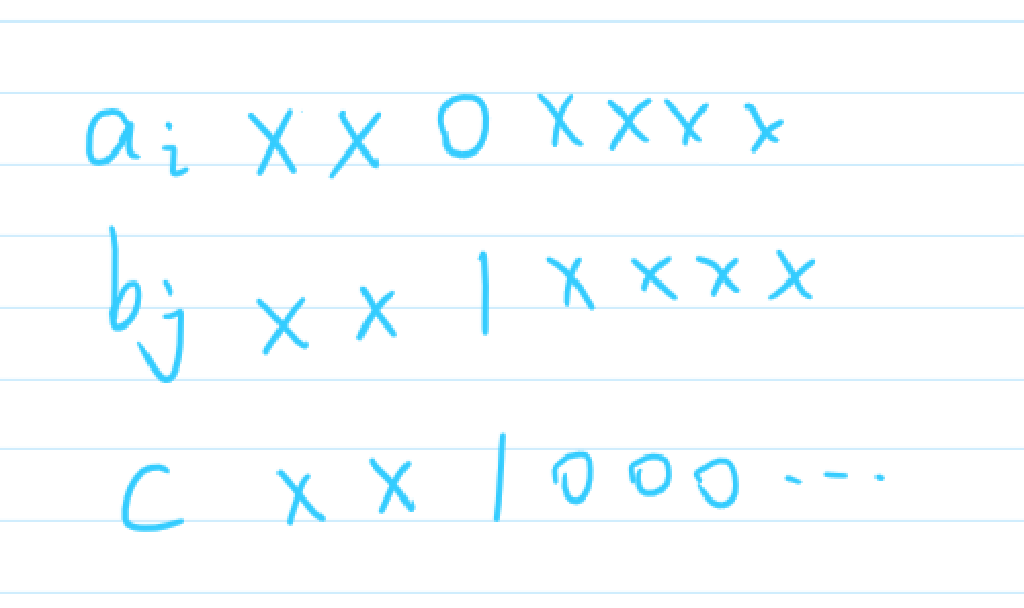 a i x x 0 x x x x
b j x x 1 x x x x
c x x 1 0 0 0 ---